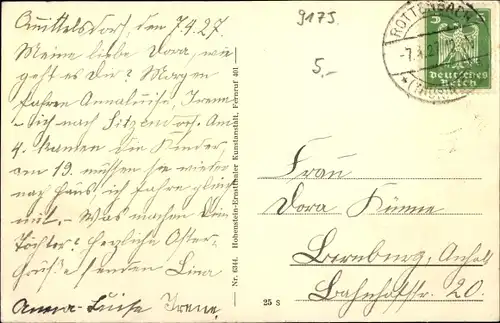 Quittelsdorf, den 7.4.27.
Meine liebe Dora, wie
geht es Dir? Morgen
fahren Annaluise, Irene
- ich nach Sitzendorf. Am
4. kamen die Kinder,
am 19. müssen sie wieder
nach Haus, ich fahre gleich
mit. - Was machen Deine
Töchter? Herzliche Oster-
grüße senden Lina
Anna-Luise Irene.
9175
5,-
ROTTENBACH
-7.4.27
(THÜR.)
5
5
Deutsches
Reich
Frau
Dora Künne
Bernburg, Anhalt
Bahnhofstr. 20.
Nr. 6344. Hohenstein-Ernstthaler Kunstanstalt, Fernruf 401.
25 s